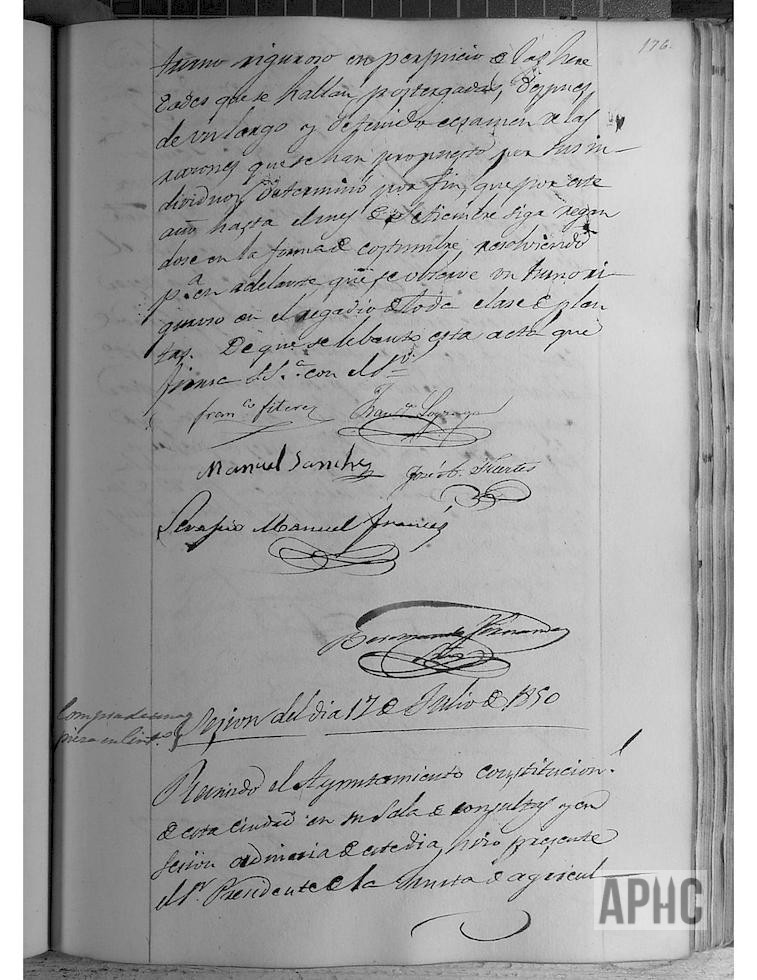 176.
turno riguroso en perjuicio de las here
dades que se hallan postergadas, despues
de un largo y detenido ecsamen de las
razones que se han propuesto por sus in-
dividuos determinó por fin, que por este
año hasta el mes de Setiembre siga regan
dose en la forma de costumbre resolviendo
pª en adelante que se observe un turno ri-
guroso en el regadio de toda clase de plan
tas. De que se lebanto esta acta que
firma el S.
franco fiterez
Manuel Sanchez
José A. Fuertes
Serafin Manuel Francés
Fernandez
Compra de una
pieza en
Sesion del dia 17 de Julio de 1850
Reunido el Ayuntamiento constitucion.l
de esta ciudad en su Sala de consultas y en
sesion ordinaria de este dia, hizo presente
el Sr Presidente de la Junta de agricul-
APHC